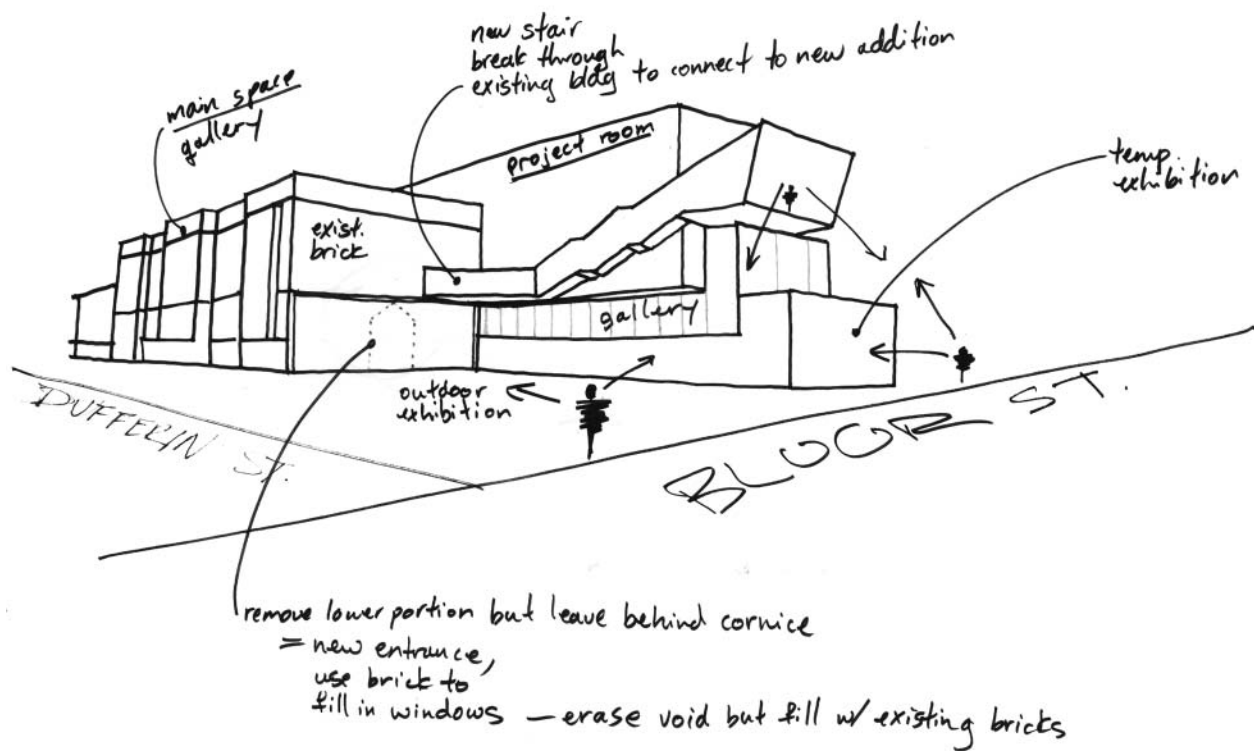 new stair
break through
existing bldg to connect to new addition
main space
gallery
project room
temp.
exhibition
exist.
brick
gallery
outdoor
exhibition
DUFFERIN ST.
BLOOR ST.
remove lower portion but leave behind cornice
= new entrance,
use brick to
fill in windows — erase void but fill w/ existing bricks